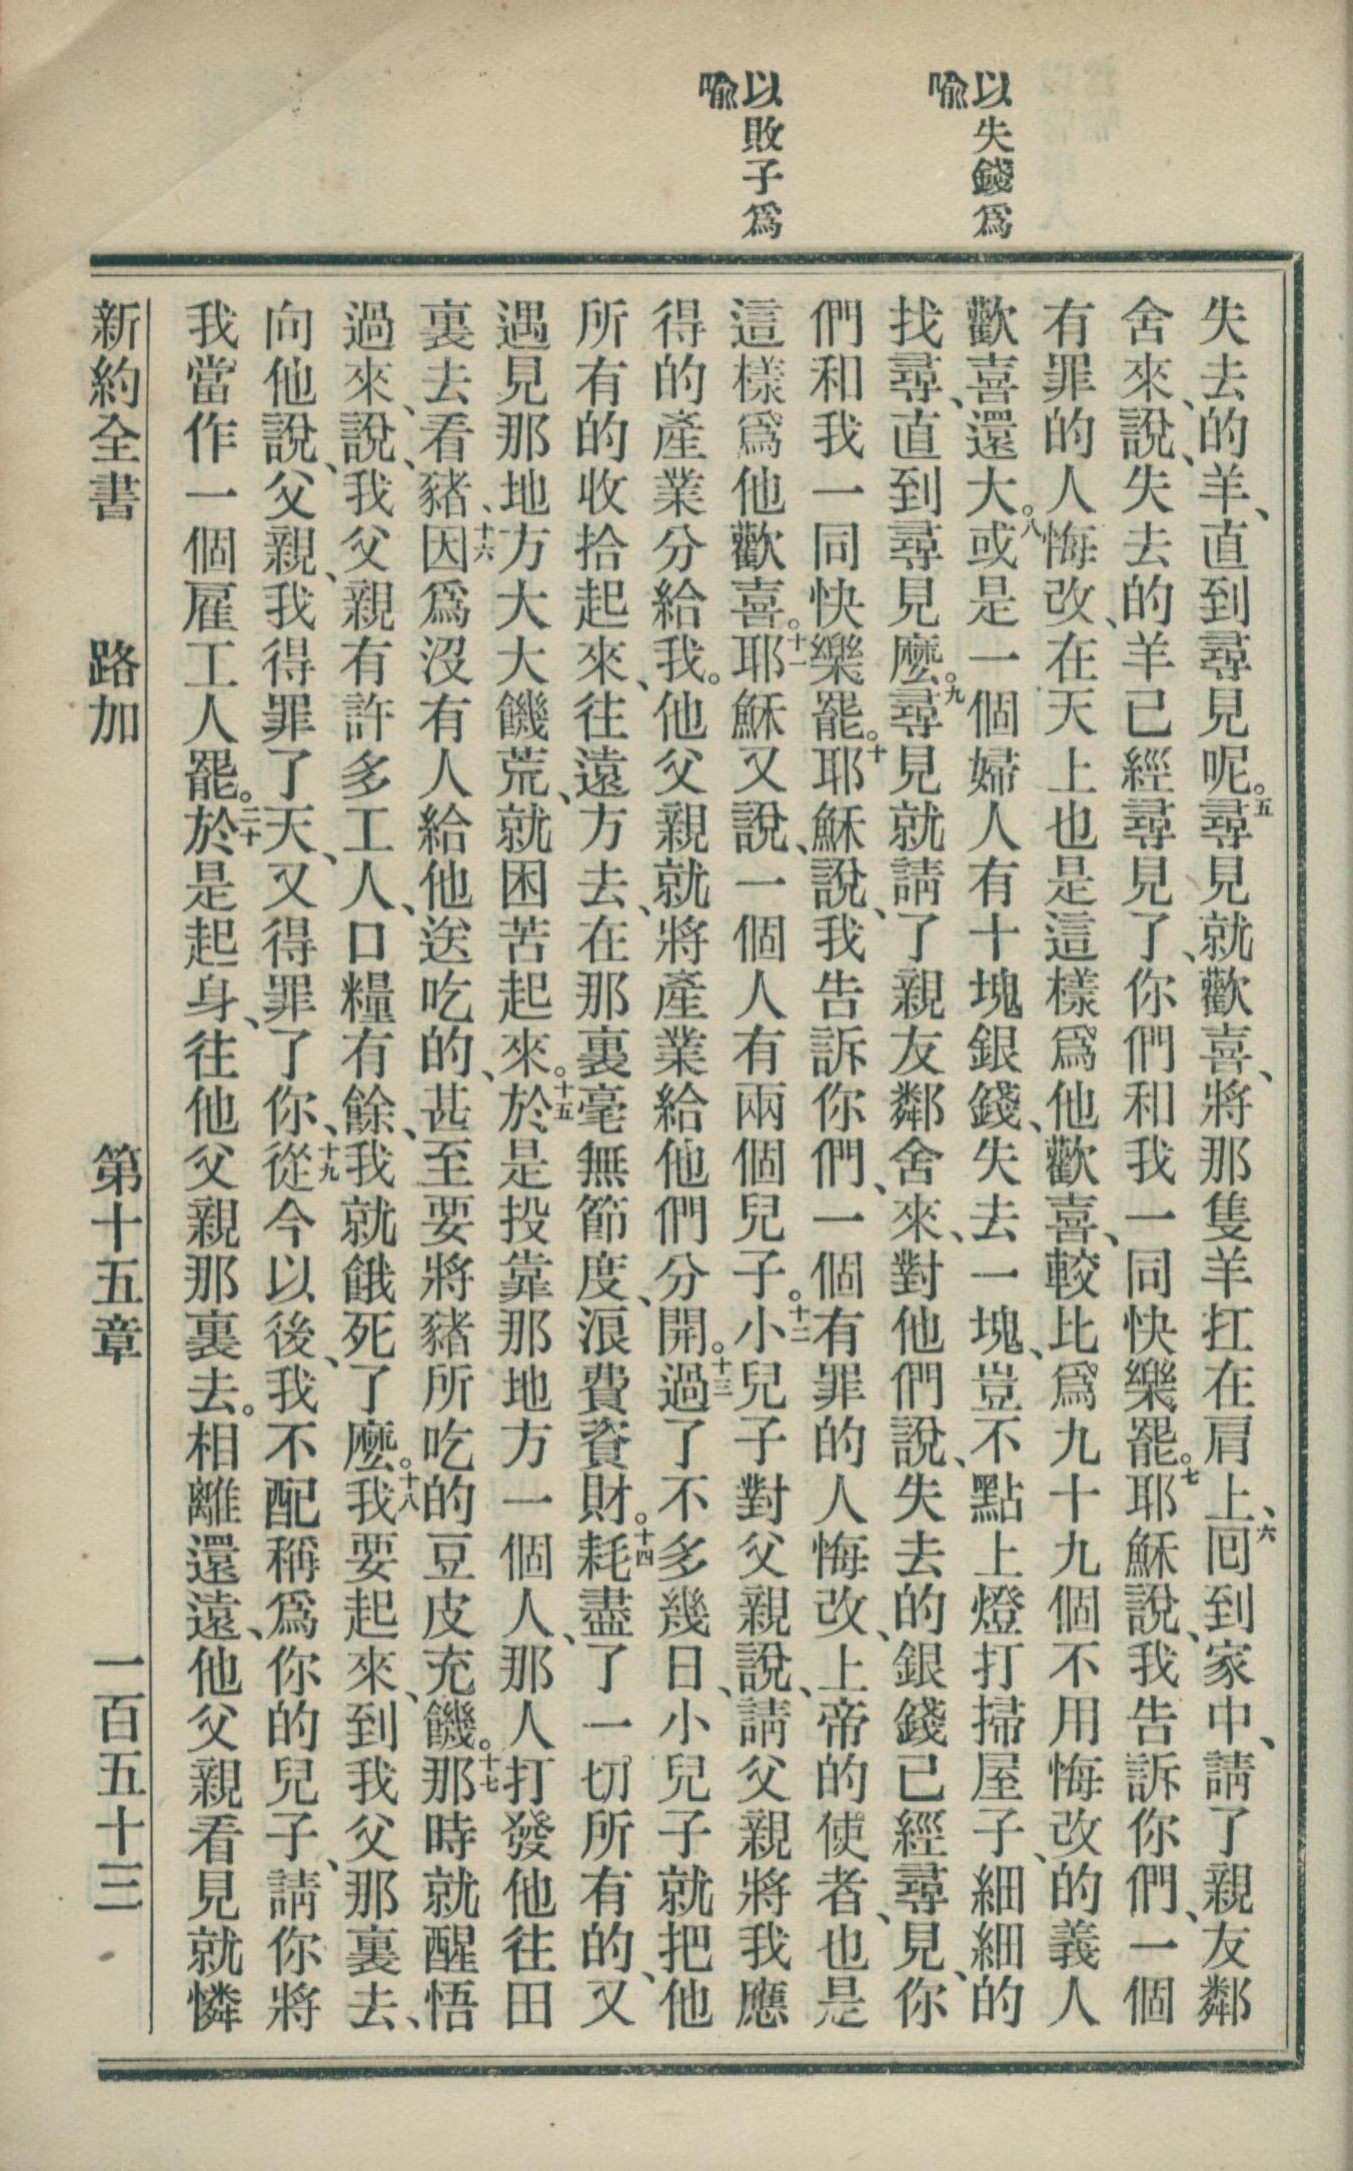 以失錢爲
喻
以敗子爲
喻
失去的羊、直到尋見呢。五尋見就歡喜、將那隻羊扛在肩上、六囘到家中、請了親友鄰
舍來、說、失去的羊已經尋見了、你們和我一同快樂罷。七耶穌說、我告訴你們、一個
有罪的人悔改、在天上也是這樣爲他歡喜、較比爲九十九個不用悔改的義人
歡喜還大。八或是一個婦人有十塊銀錢、失去一塊、豈不點上燈打掃屋子、細細的
找尋、直到尋見麼。九尋見就請了親友鄰舍來、對他們說、失去的銀錢已經尋見、你
們和我一同快樂罷。十耶穌說、我告訴你們、一個有罪的人悔改、上帝的使者、也是
這樣爲他歡喜。十一耶穌又說、一個人有兩個兒子。十二小兒子對父親說、請父親將我應
得的產業分給我。他父親就將產業給他們分開。十三過了不多幾日、小兒子就把他
所有的收拾起來、往遠方去、在那裏毫無節度、浪費資財。十四耗盡了一切所有的、又
遇見那地方大大饑荒、就困苦起來。十五於是投靠那地方一個人、那人打發他往田
裏去看豬、十六因爲沒有人給他送吃的、甚至要將豬所吃的豆皮充饑。十七那時就醒悟
過來、說、我父親有許多工人、口糧有餘、我就餓死了麼。十八我要起來、到我父那裏去、
向他說、父親、我得罪了天、又得罪了你、十九從今以後、我不配稱爲你的兒子、請你將
我當作一個雇工人罷。二十於是起身、往他父親那裏去。相離還遠、他父親看見就憐
新約全書　路加　第十五章　一百五十三